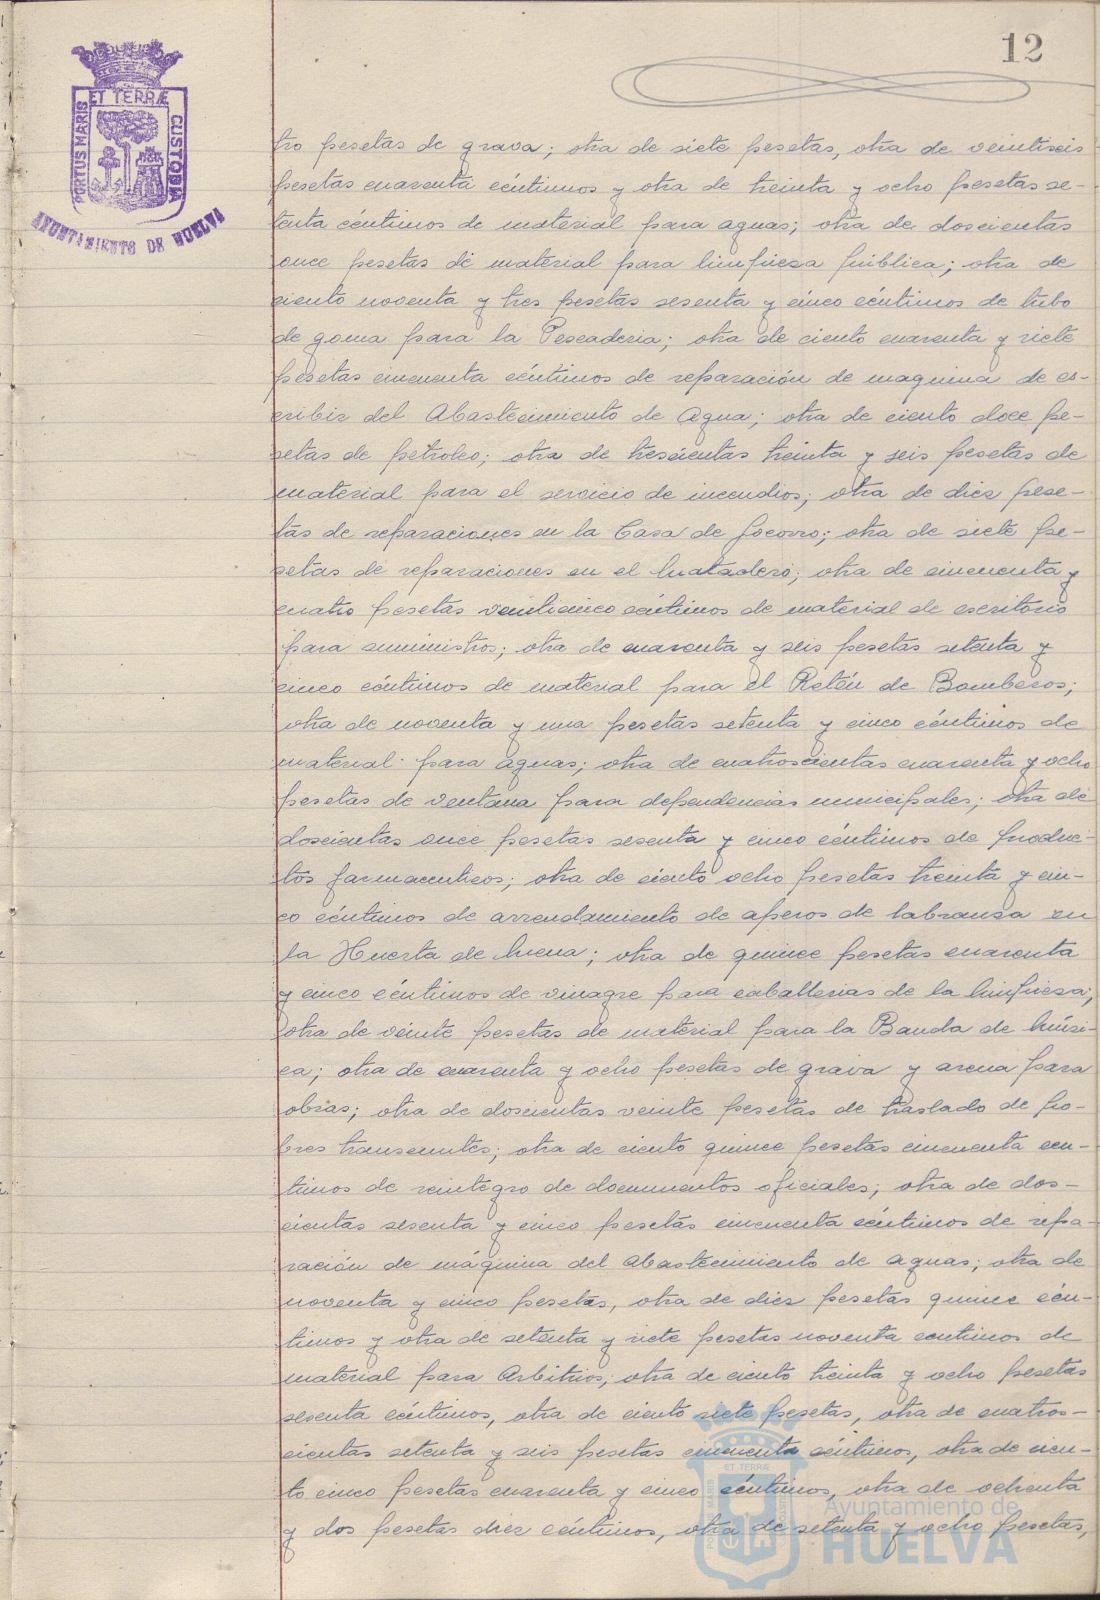 12
ET TERRÆ
PORTUS MARIS
CUSTODIA
AYUNTAMIENTO DE HUELVA
tro pesetas de grava; otra de siete pesetas, otra de veintiseis
pesetas cuarenta céntimos y otra de treinta y ocho pesetas se-
tenta céntimos de material para aguas; otra de doscientas
once pesetas de material para limpieza pública; otra de
ciento noventa y tres pesetas sesenta y cinco céntimos de tubo
de goma para la Pescaderia; otra de ciento cuarenta y siete
pesetas cincuenta céntimos de reparación de maquina de es-
cribir del Abastecimiento de Agua; otra de ciento doce pe-
setas de petroleo; otra de trescientas treinta y seis pesetas de
material para el servicio de incendios; otra de diez pese-
tas de reparaciones en la Casa de Socorro; otra de siete pe-
setas de reparaciones en el Matadero; otra de cincuenta y
cuatro pesetas veinticinco céntimos de material de escritorio
para suministros; otra de cuarenta y seis pesetas setenta y
cinco céntimos de material para el Retén de Bomberos;
otra de noventa y una pesetas setenta y cinco céntimos de
material para aguas; otra de cuatroscientas cuarenta y ocho
pesetas de ventana para dependencias municipales; otra de
doscientas once pesetas sesenta y cinco céntimos de produc-
tos farmaceuticos; otra de ciento ocho pesetas treinta y cin-
co céntimos de arrendamiento de aperos de labranza en
la Huerta de Mena; otra de quince pesetas cuarenta
y cinco céntimos de vinagre para caballerias de la limpieza;
otra de veinte pesetas de material para la Banda de Músi-
ca; otra de cuarenta y ocho pesetas de grava y arena para
obras; otra de doscientas veinte pesetas de traslado de po-
bres transeuntes; otra de ciento quince pesetas cincuenta cen-
timos de reintegro de documentos oficiales; otra de dos-
cientas sesenta y cinco pesetas cincuenta céntimos de repa-
ración de máquina del abastecimiento de aguas; otra de
noventa y cinco pesetas, otra de diez pesetas quince cén-
timos y otra de setenta y siete pesetas noventa centimos de
material para Arbitrios; otra de ciento treinta y ocho pesetas
sesenta céntimos, otra de ciento siete pesetas, otra de cuatros-
cientas setenta y seis pesetas cincuenta céntimos, otra de cien-
to cinco pesetas cuarenta y cinco céntimos, otra de ochenta
y dos pesetas diez céntimos, otra de setenta y ocho pesetas,
Ayuntamiento de
HUELVA